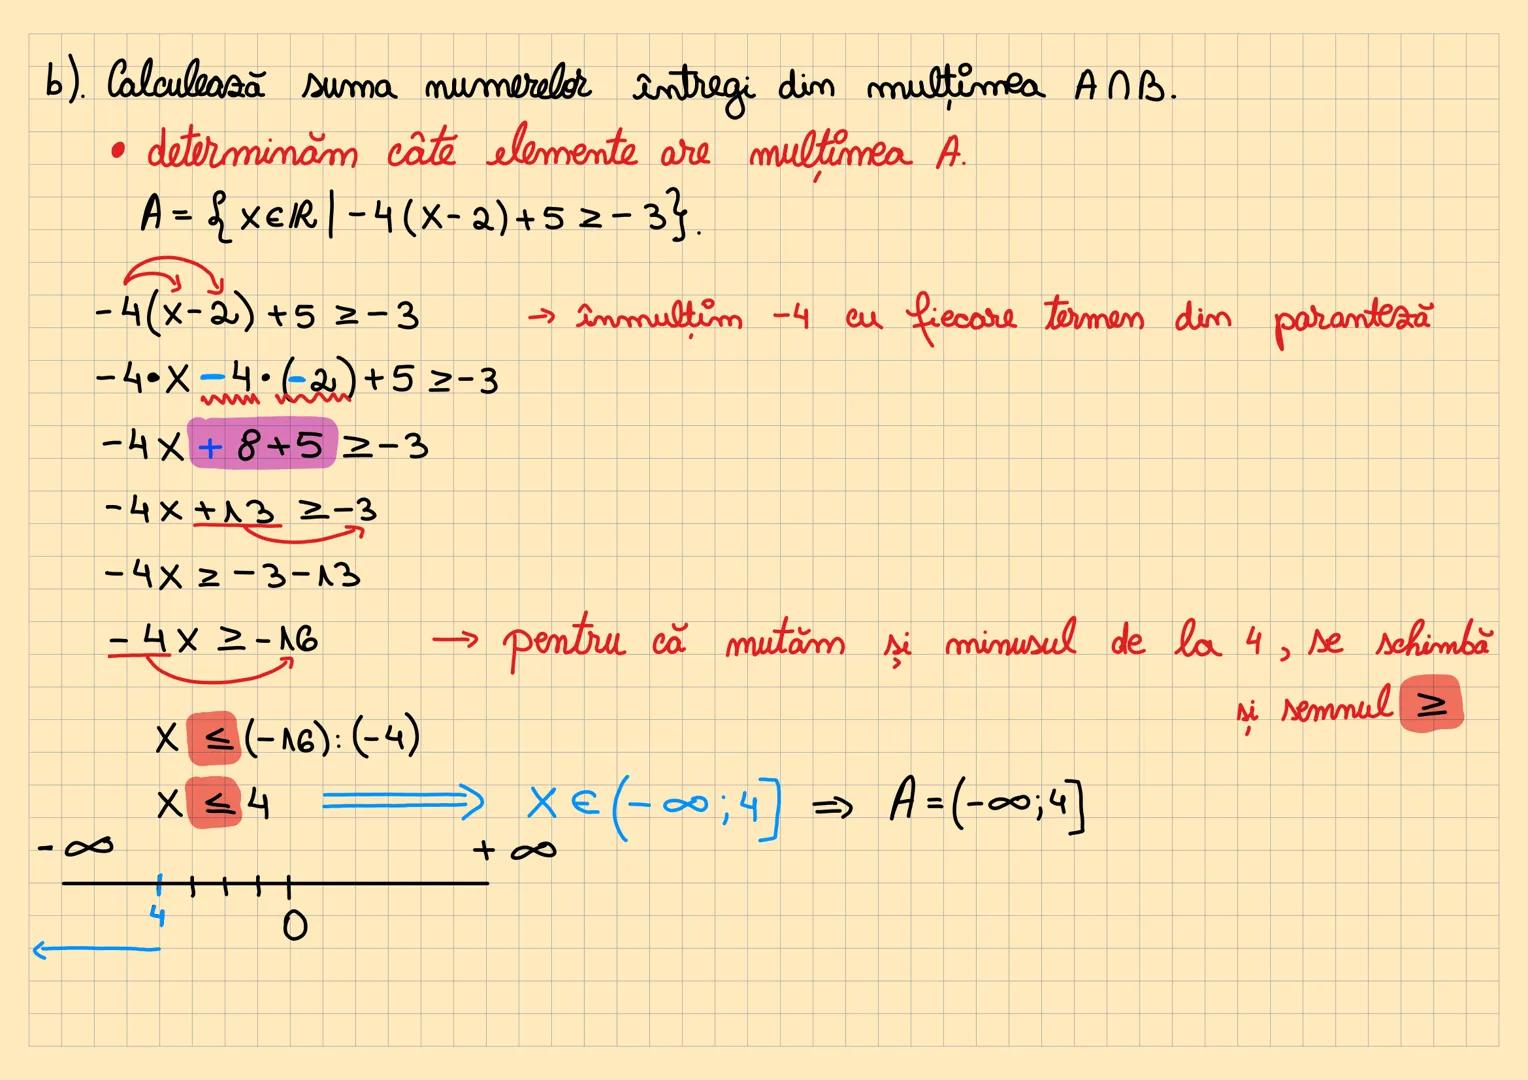 b). Calculează suma numerelor întregi din mulțimea A∩B.
• determinăm câte elemente are mulțimea A.
A = { x∈ℝ | -4(x-2)+5 ≥ -3}.
-4(x-2)+5 ≥ -3 → înmulțim -4 cu fiecare termen din paranteză
-4•x -4·(-2)+5 ≥ -3
-4x + 8+5 ≥ -3
-4x +13 ≥ -3
-4x ≥ -3-13
-4x ≥ -16 → pentru că mutăm și minusul de la 4, se schimbă
și semnul ≥
x ≤ (-16):(-4)
x ≤ 4 ⟹ x∈(-∞;4] ⇒ A=(-∞;4]
-∞ +∞
4 0